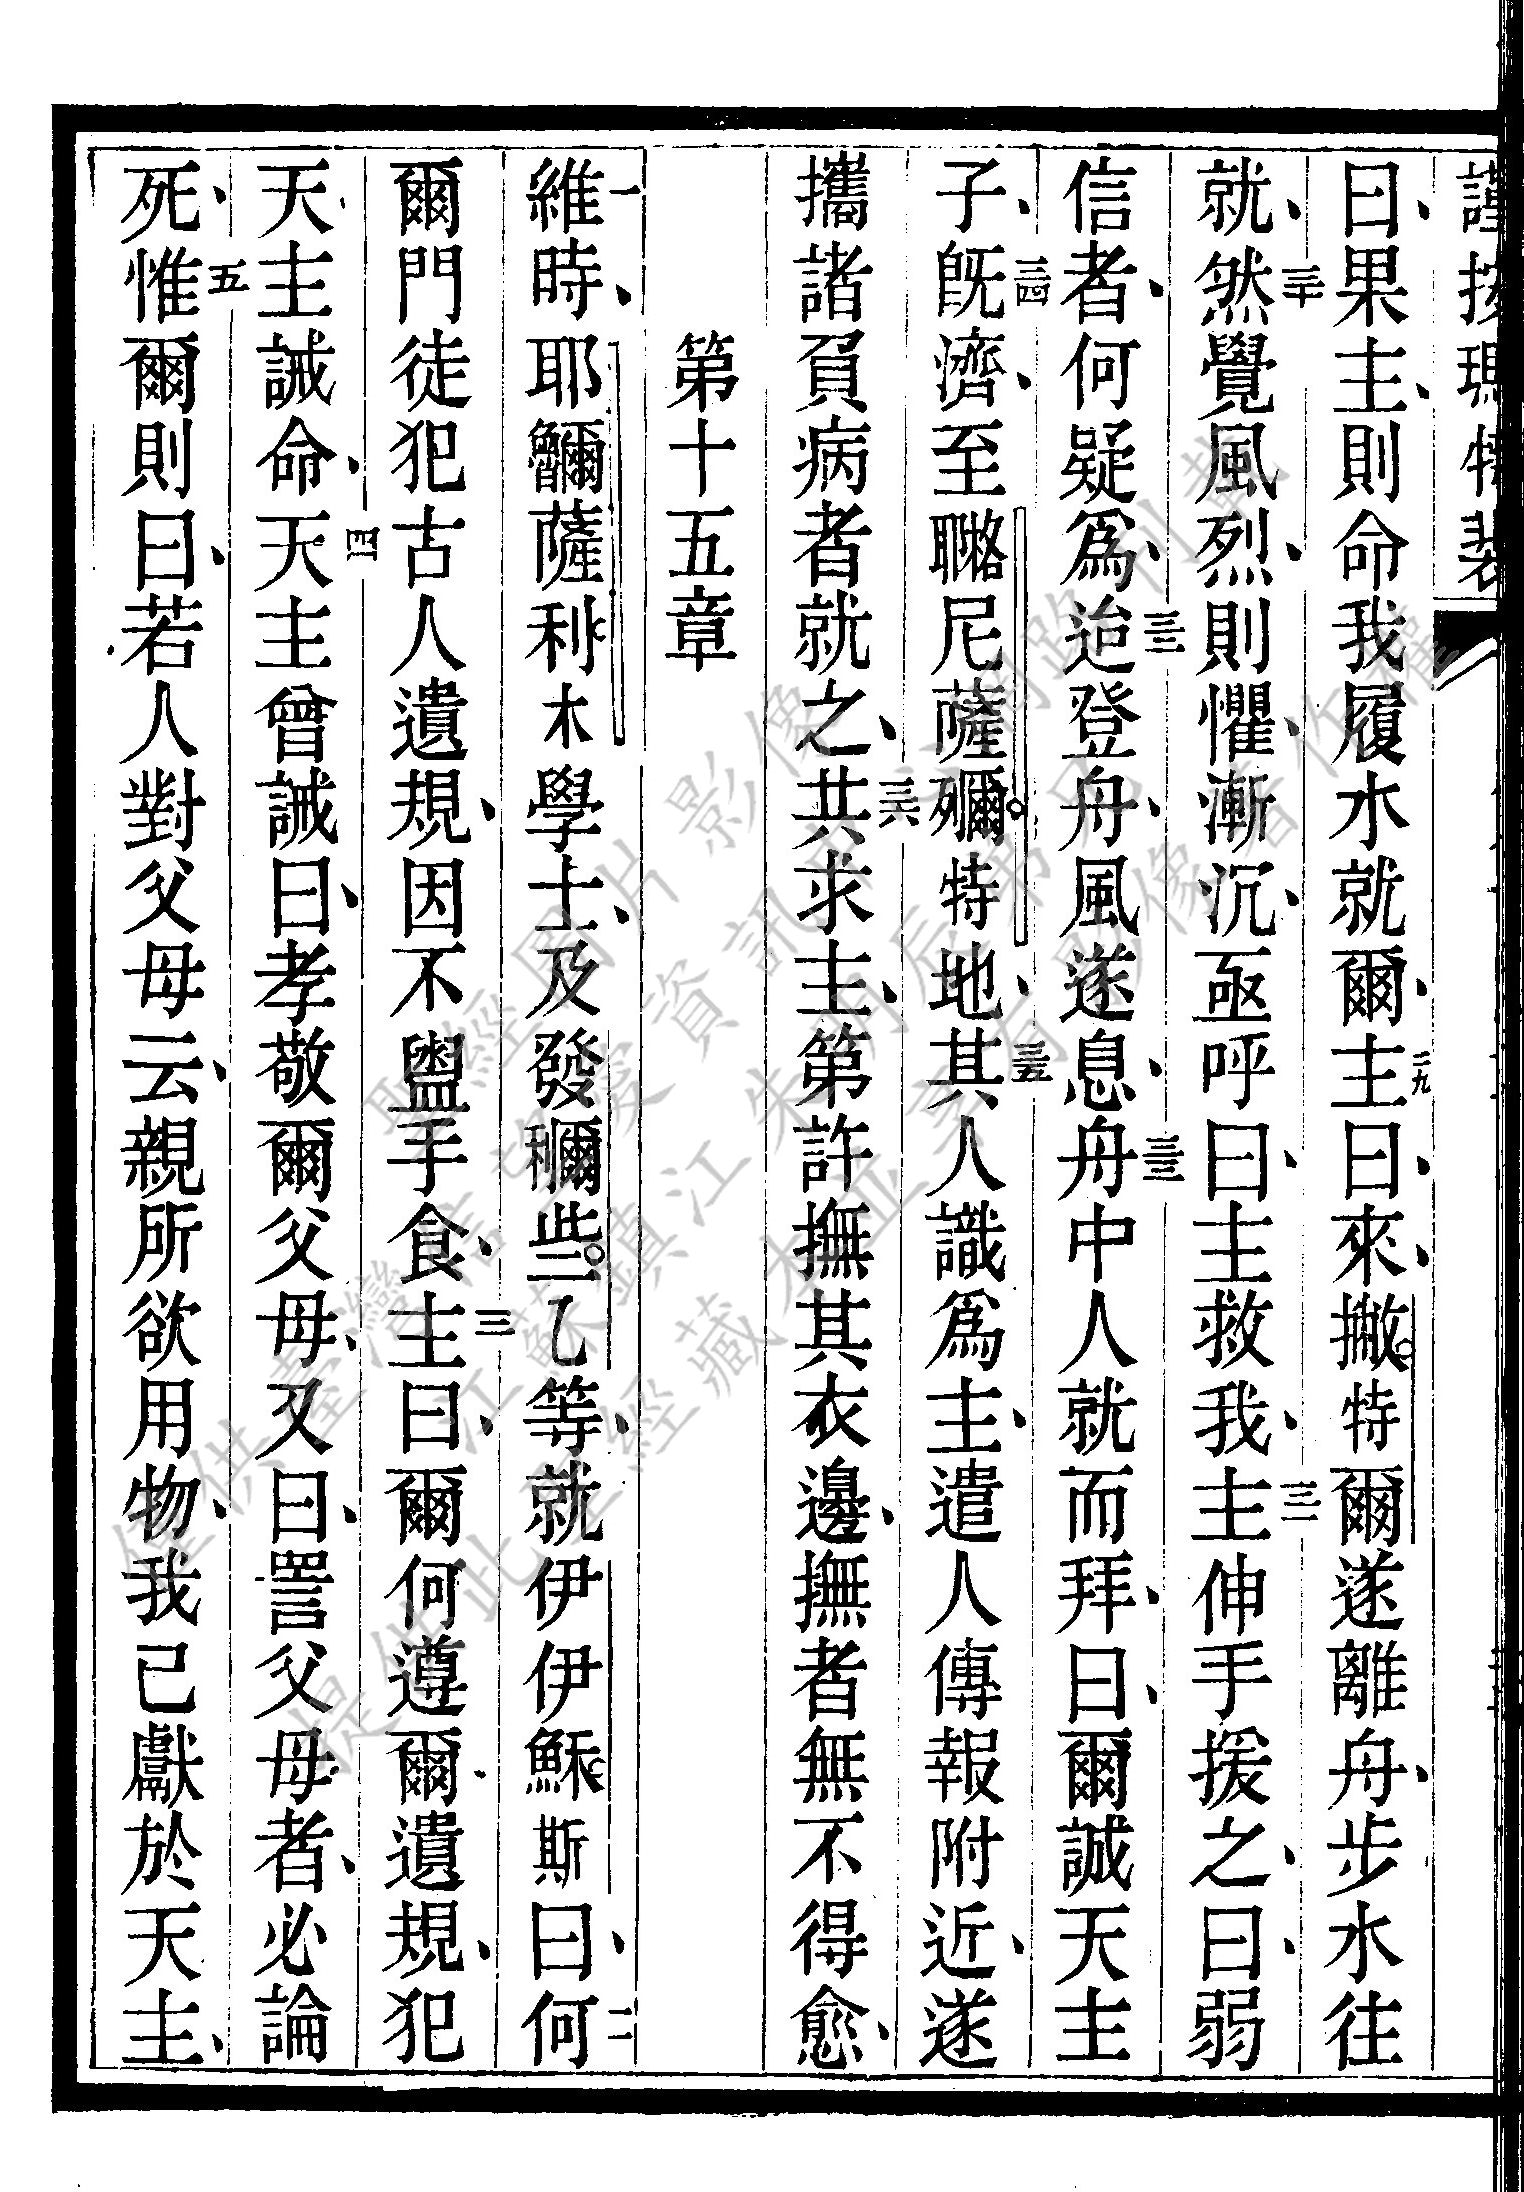 曰、果主、則命我履水就爾、二九主曰、來、撇。特爾遂離舟、步水往
就、三十然覺風烈、則懼、漸沉、亟呼曰、主救我、三一主伸手援之、曰、弱
信者、何疑爲、三二迨登舟、風遂息、三三舟中人就而拜、曰、爾誠天主
子、三四旣濟、至尼薩特地、三五其人識爲主、遣人傳報附近、遂
攜諸負病者就之、三六共求主、第許撫其衣邊、撫者無不得愈、
第十五章
一維時、耶薩利木學士、及發些乙等、就伊伊穌斯曰、二何
爾門徒犯古人遺規、因不盥手食、三主曰、爾何遵爾遺規、犯
天主誡命、四天主曾誡曰、孝敬爾父母、又曰、詈父母者、必論
死、五惟爾則曰、若人對父母云、親所欲用物、我已獻於天主、